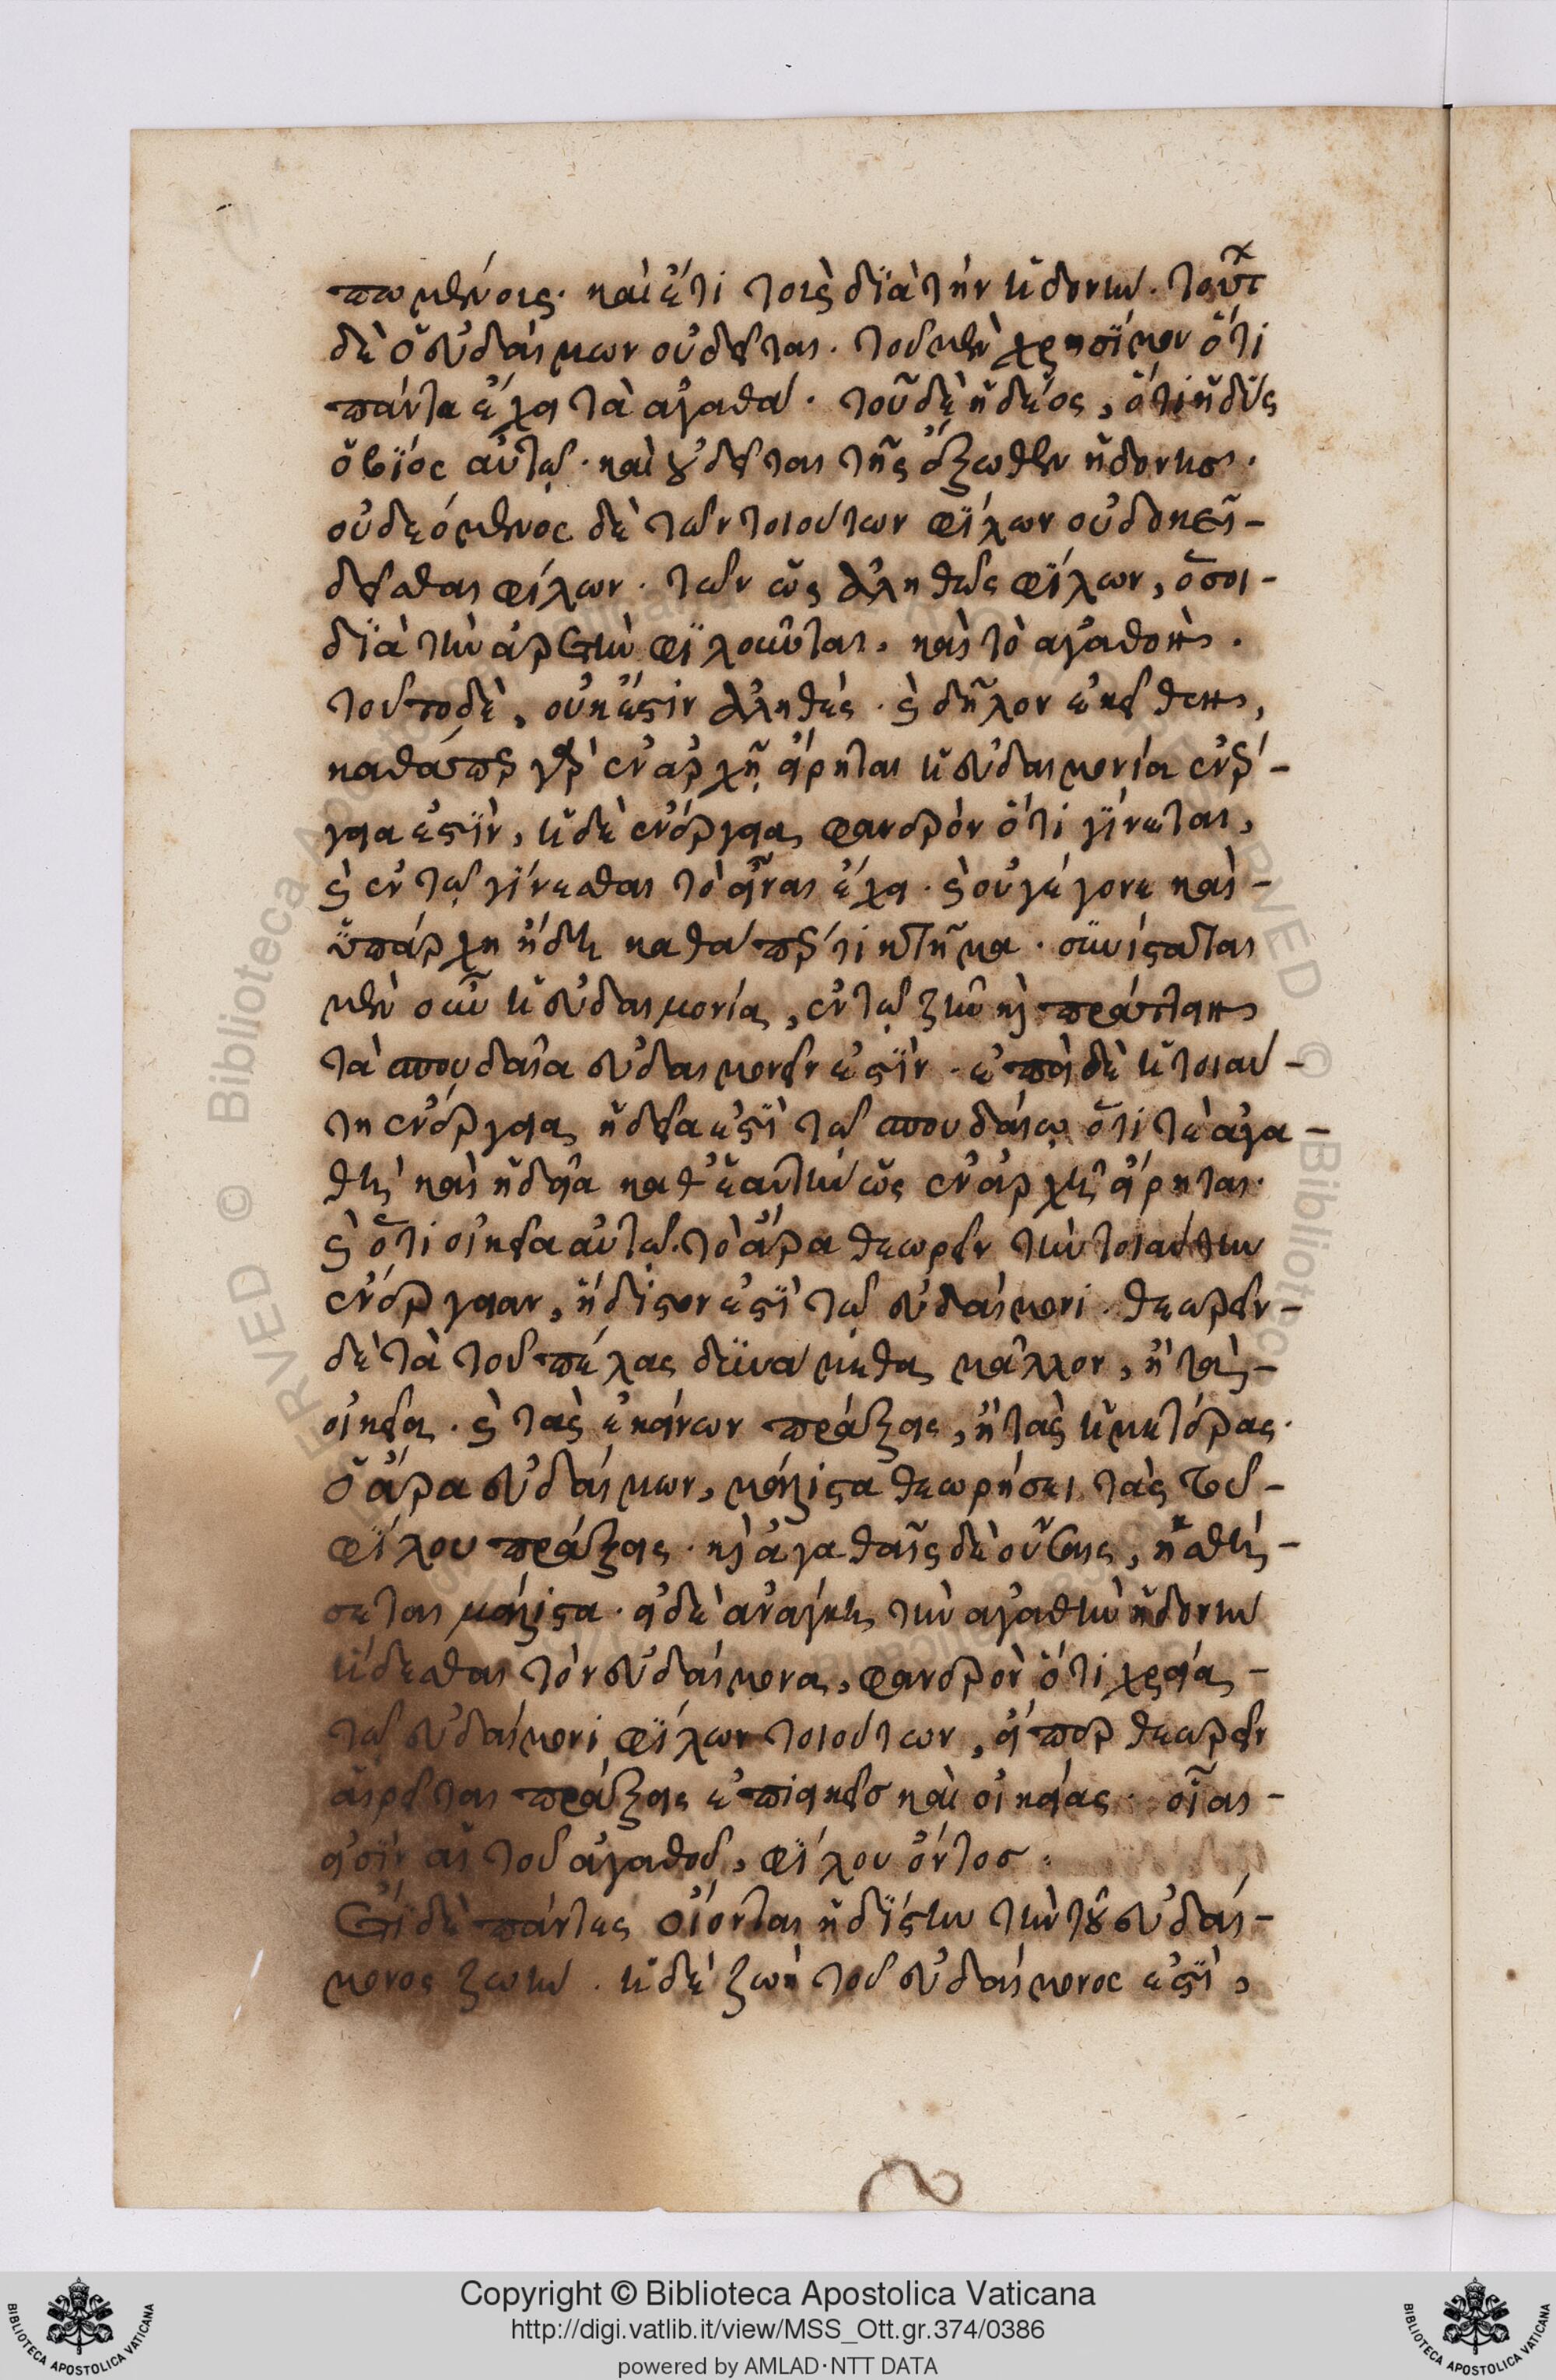 πωμένοις. καὶ ἔτι τοῖς διὰ τὴν ἡδονήν. τούτων
δὲ ὁ εὐδαίμων οὐ δεῖται. τοῦ μὲν χρησίμου ὅτι
πάντα ἔχει τὰ ἀγαθά. τοῦ δὲ ἡδέος, ὅτι ἡδὺς
ὁ βίος αὐτῷ. καὶ οὐ δεῖται τῆς ἔξωθεν ἡδονῆς.
οὐ δεόμενος δὲ τῶν τοιούτων φίλων οὐ δοκεῖ-
δεῖσθαι φίλων. τῶν ὡς ἀληθῶς φίλων, ὅσοι-
διὰ τὴν ἀρετὴν φιλοῦνται, καὶ τὸ ἀγαθόν.
τοῦτο δὲ, οὐκ ἔστιν ἀληθές. καὶ δῆλον ἐκεῖθεν,
καθάπερ γὰρ ἐν ἀρχῇ εἴρηται ἡ εὐδαιμονία ἐνέρ-
γεια ἐστὶν, ἡ δὲ ἐνέργεια φανερὸν ὅτι γίνεται,
καὶ ἐν τῷ γίνεσθαι τὸ εἶναι ἔχει. καὶ οὐ γέγονε καὶ-
ὑπάρχη ἤδη καθάπερ τι κτῆμα. συνίσταται
μὲν οὖν ἡ εὐδαιμονία, ἐν τῷ ζῆν καὶ πράττειν
τὰ σπουδαῖα εὐδαιμονεῖν ἐστὶν. ἐπεὶ δὲ ἡ τοιαύ-
τη ἐνέργεια ἡδεῖα ἐστὶ τῷ σπουδαίῳ ὅτι τὲ ἀγα-
θὴ καὶ ἡδεῖα καθ᾽ ἑαυτὴν ὡς ἐν ἀρχῇ εἴρηται.
καὶ ὅτι οἰκεῖα αὐτῷ. τὸ ἄρα θεωρεῖν τὴν τοιαύτην
ἐνέργειαν, ἥδιστον ἐστὶ τῷ εὐδαίμονι. θεωρεῖν-
δὲ τὰ τοῦ πέλας δυνάμεθα μᾶλλον, ἢ τὰ-
οἰκεῖα. καὶ τὰς ἐκείνων πράξεις, ἢ τὰς ἡμετέρας.
ὁ ἄρα εὐδαίμων, μάλιστα θεωρήσει τὰς τοῦ-
φίλου πράξεις. καὶ ἀγαθαῖς δὲ οὔσαις, ἡσθή-
σεται μάλιστα. εἰ δὲ ἀνάγκη τὴν ἀγαθὴν ἡδονὴν
ἥδεσθαι τὸν εὐδαίμονα, φανερὸν ὅτι χρεία-
τῷ εὐδαίμονι φίλων τοιούτων, εἴπερ θεωρεῖν
αἱρεῖται πράξεις ἐπιεικεῖς καὶ οἰκείας. οἷαι-
εἰσὶν αἱ τοῦ ἀγαθοῦ, φίλου ὄντος.
Ἔτι δὲ πάντες οἴονται ἡδίστην τὴν τοῦ εὐδαί-
μονος ζωήν. ἡ δὲ ζωὴ τοῦ εὐδαίμονος ἐστὶ,
Copyright © Biblioteca Apostolica Vaticana
http://digi.vatlib.it/view/MSS_Ott.gr.374/0386
powered by AMLAD·NTT DATA
BIBLIOTECA APOSTOLICA VATICANA
BIBLIOTECA APOSTOLICA VATICANA